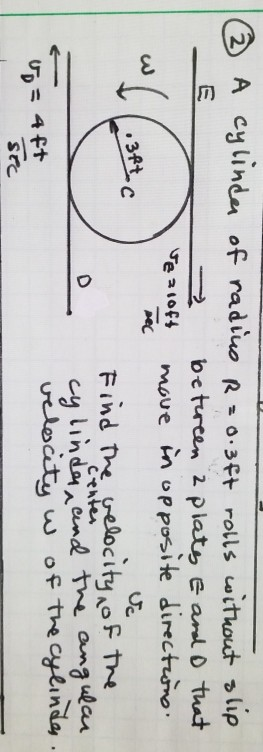 ② A cylinder of radius R = 0.3ft rolls without slip
between 2 plates E and D that
move in opposite directions.
E
v_E = 10 ft/sec
ω
.3ft
C
D
v_D = 4 ft/sec
Find the velocity v_c of the
cylinder center and the angular
velocity ω of the cylinder.